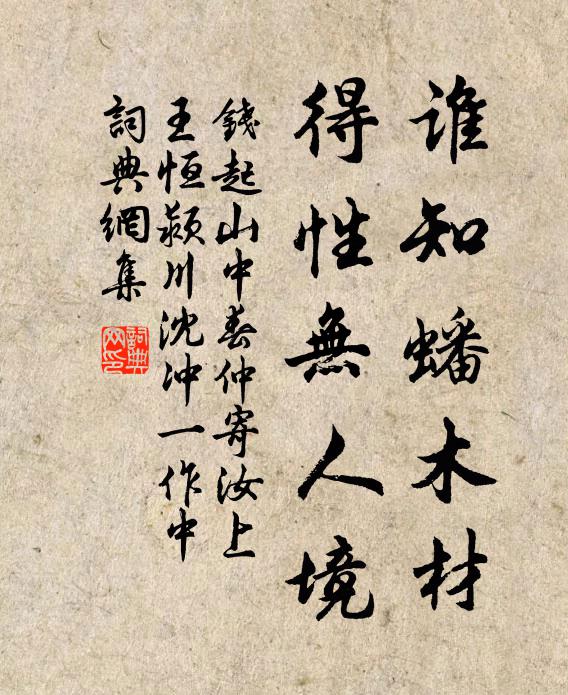 谁知蟠木材
得性無人境
錢起山中春仲寄汝上
王恒颍川沈冲一作中
詞典網集
詞典网印